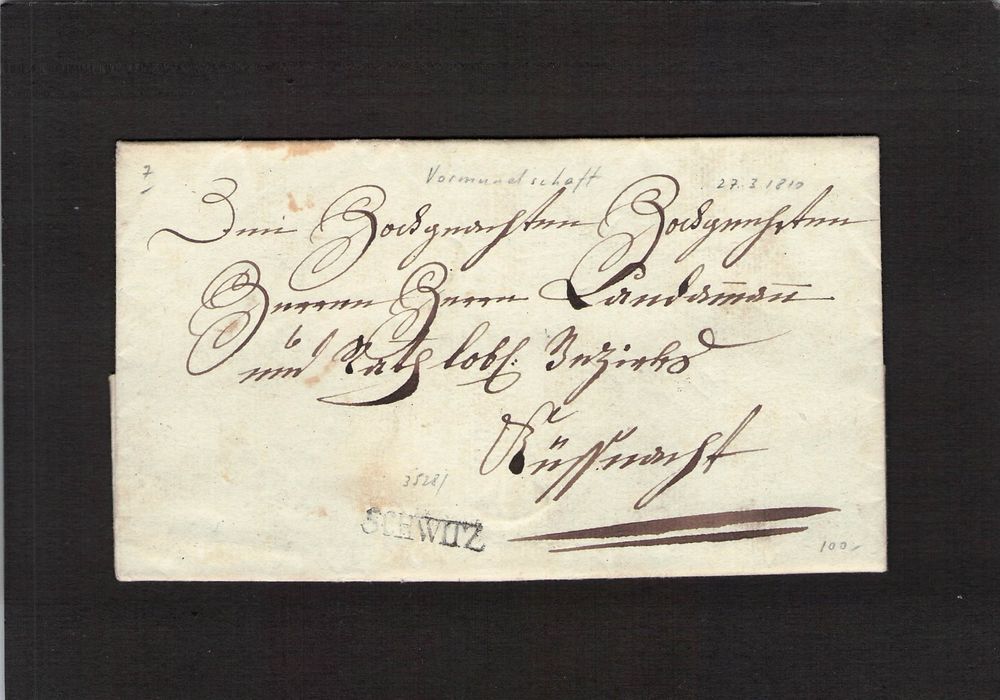 7
Vormundschaft
27.3.1810
Den Hochgeachten Hochgeehrten
Herren Herrn Landam̅an̅
und Rath lobl: Bezirks
Küssnacht
3528/
SCHWITZ
100.-